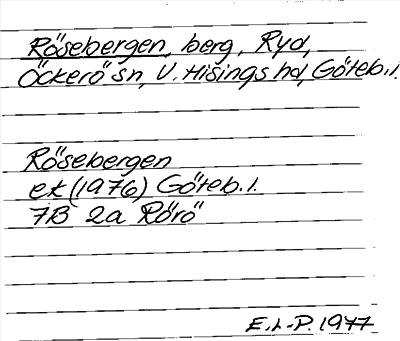 Rösebergen, berg, Ryd,
Öckerö sn, V. Hisings hd, Göteb.l.
Rösebergen
ek (1976) Göteb. l.
7B 2a Rörö
E.L-P. 1977